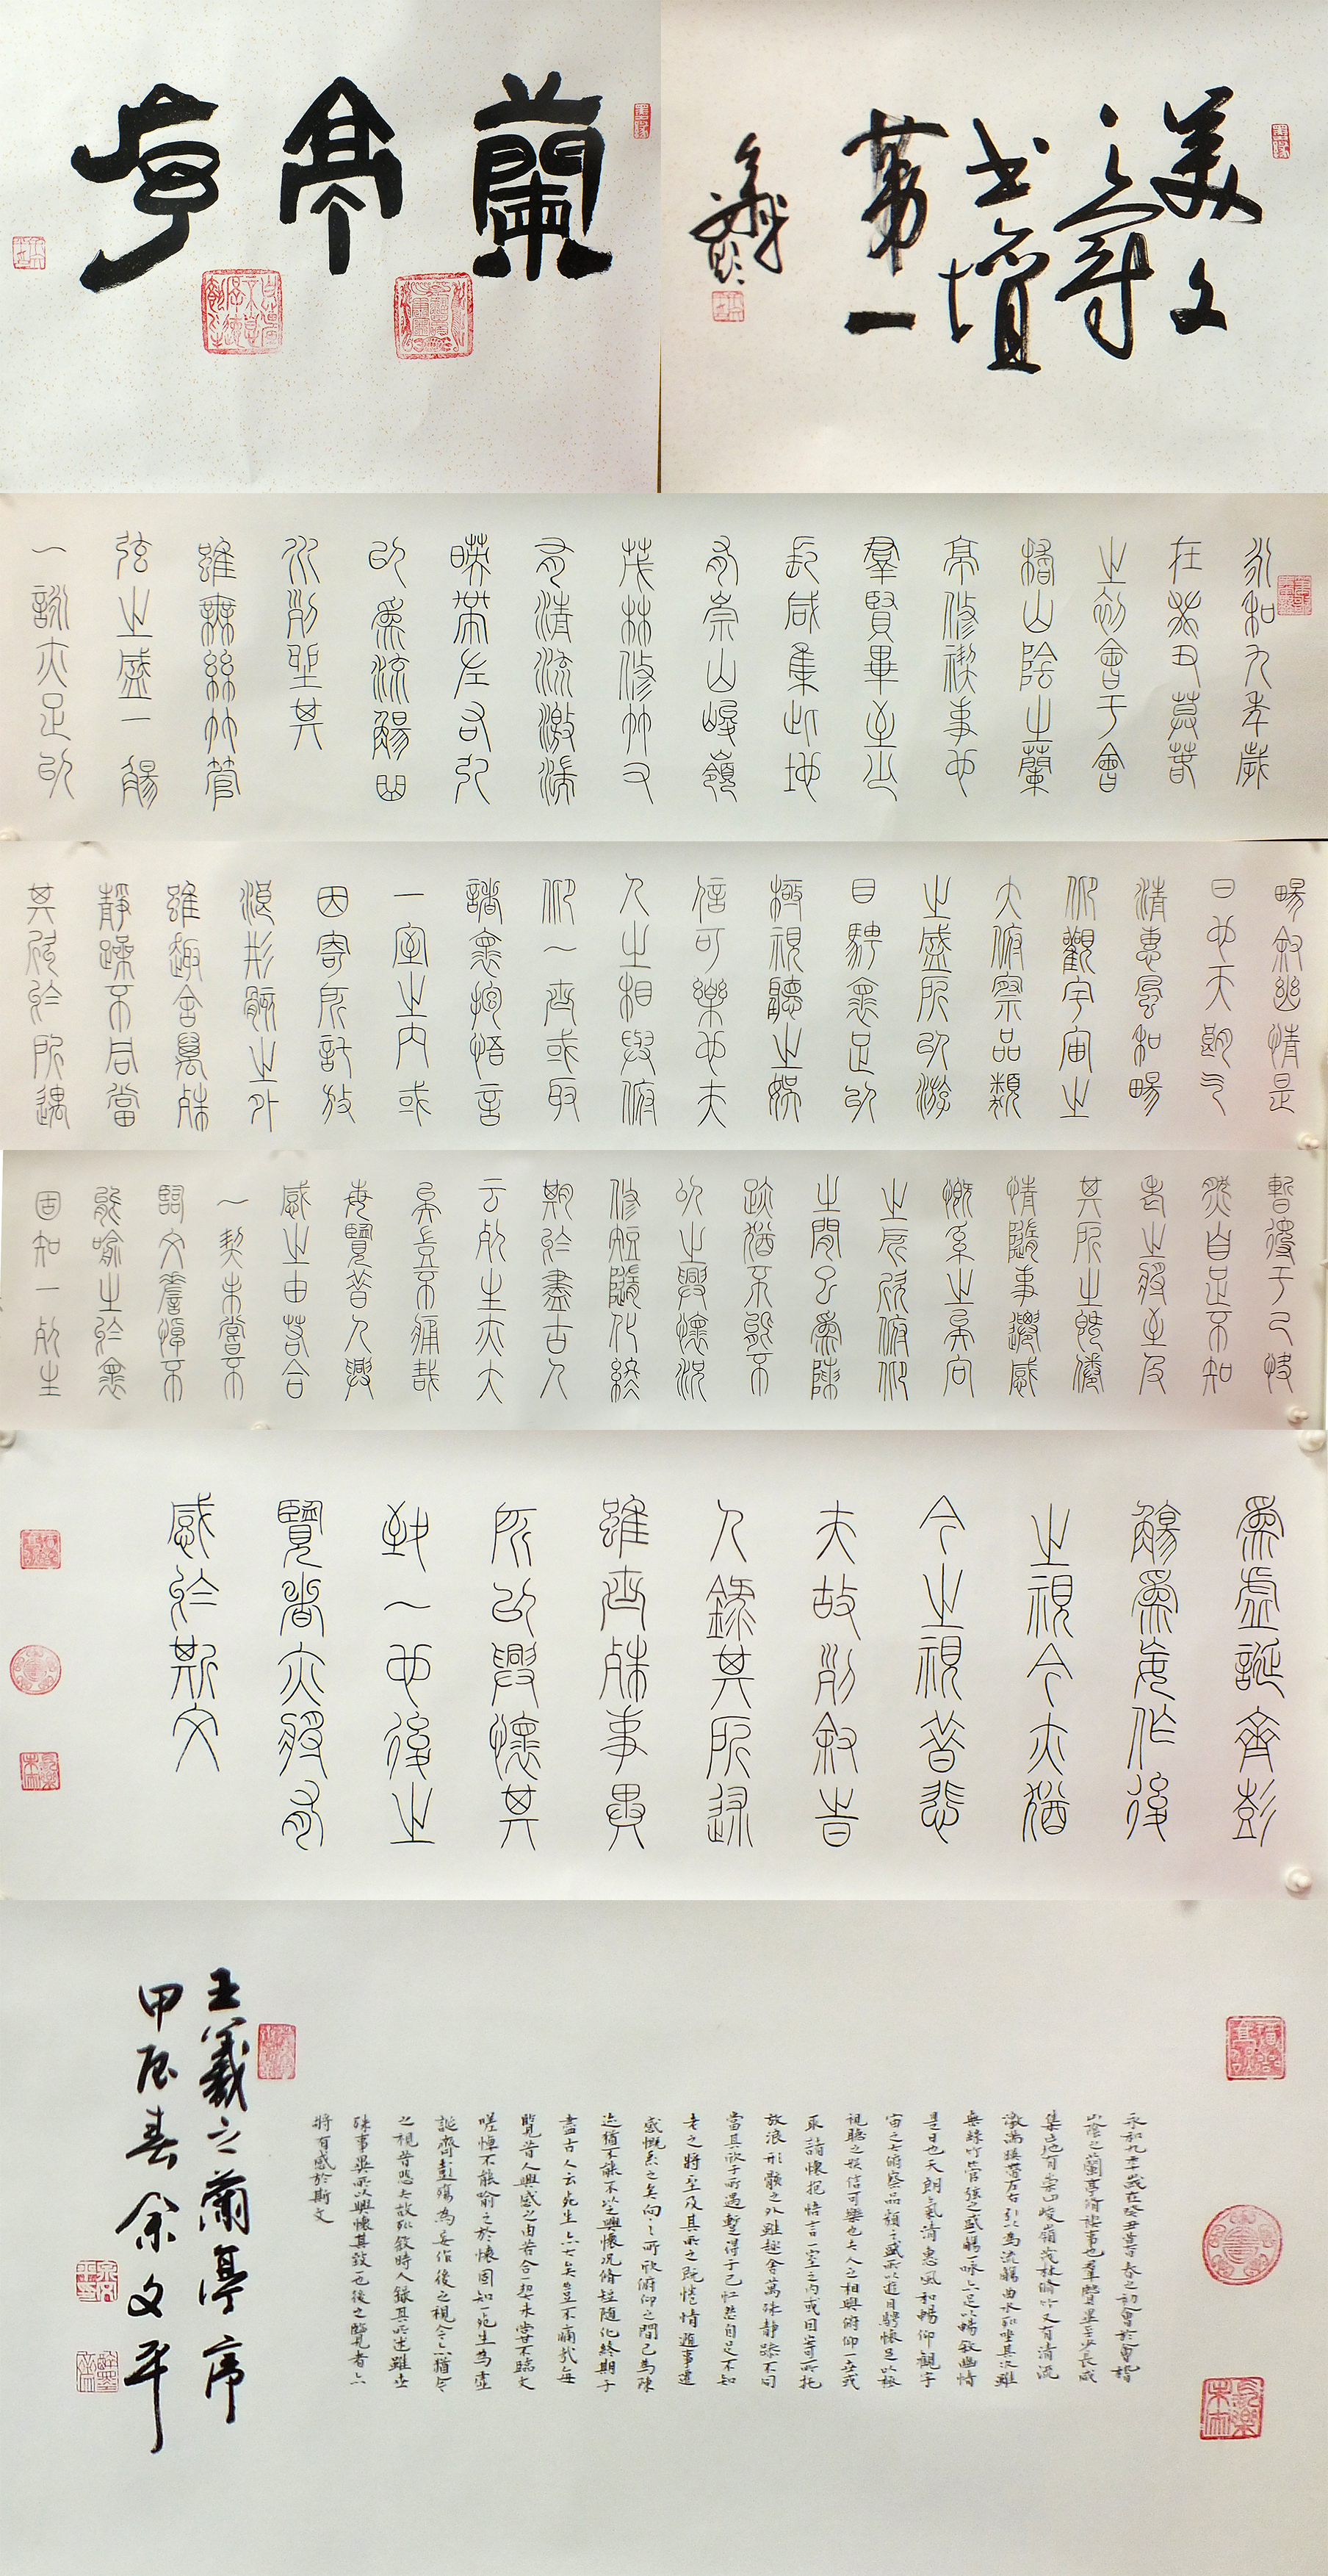 蘭亭序
美文
之冠
書壇
第一
永和九年歲
在癸丑莫春
之初會于會
稽山陰之蘭
亭修禊事也
羣賢畢至少
長咸集此地
有崇山峻嶺
茂林修竹又
有清流激湍
暎帶左右引
以為流觴曲
水列坐其
雖無絲竹管
弦之盛一觴
一詠亦足以
暢敘幽情是
日也天朗气
清惠風和暢
仰觀宇宙之
大俯察品類
之盛所以游
目騁懷足以
極視聽之娛
信可樂也夫
人之相與俯
仰一世或取
諸懷抱悟言
一室之內或
因寄所託放
浪形骸之外
雖趣舍萬殊
靜躁不同當
其欣於所遇
暫得于己快
然自足不知
老之將至及
其所之既倦
情隨事遷感
慨系之矣向
之所欣俯仰
之閒已為陳
跡猶不能不
以之興懷況
修短隨化終
期於盡古人
云死生亦大
矣豈不痛哉
每覽昔人興
感之由若合
一契未嘗不
臨文嗟悼不
能喻之於懷
固知一死生
為虛誕齊彭
殤為妄作後
之視今亦猶
今之視昔悲
夫故列敘時
人錄其所述
雖世殊事異
所以興懷其
致一也後之
覽者亦將有
感於斯文
永和九年歲在癸丑暮春之初會於會稽
山陰之蘭亭脩禊事也羣賢畢至少長咸
集此地有崇山峻嶺茂林脩竹又有清流
激湍暎帶左右引以為流觴曲水列坐其次雖
無絲竹管弦之盛一觴一詠亦足以暢敘幽情
是日也天朗氣清惠風和暢仰觀宇
宙之大俯察品類之盛所以遊目騁懷足以極
視聽之娛信可樂也夫人之相與俯仰一世或
取諸懷抱悟言一室之內或因寄所託
放浪形骸之外雖趣舍萬殊靜躁不同
當其欣于所遇暫得于己怏然自足不知
老之將至及其所之既惓情隨事遷
感慨系之矣向之所欣俯仰之間已為陳
迹猶不能不以之興懷況脩短隨化終期于
盡古人云死生亦大矣豈不痛哉每
覽昔人興感之由若合一契未嘗不臨文
嗟悼不能喻之於懷固知一死生為虛
誕齊彭殤為妄作後之視今亦猶今
之視昔悲夫故列敘時人錄其所述雖世
殊事異所以興懷其致一也後之覽者亦
將有感於斯文
王羲之蘭亭序
甲辰春余文平